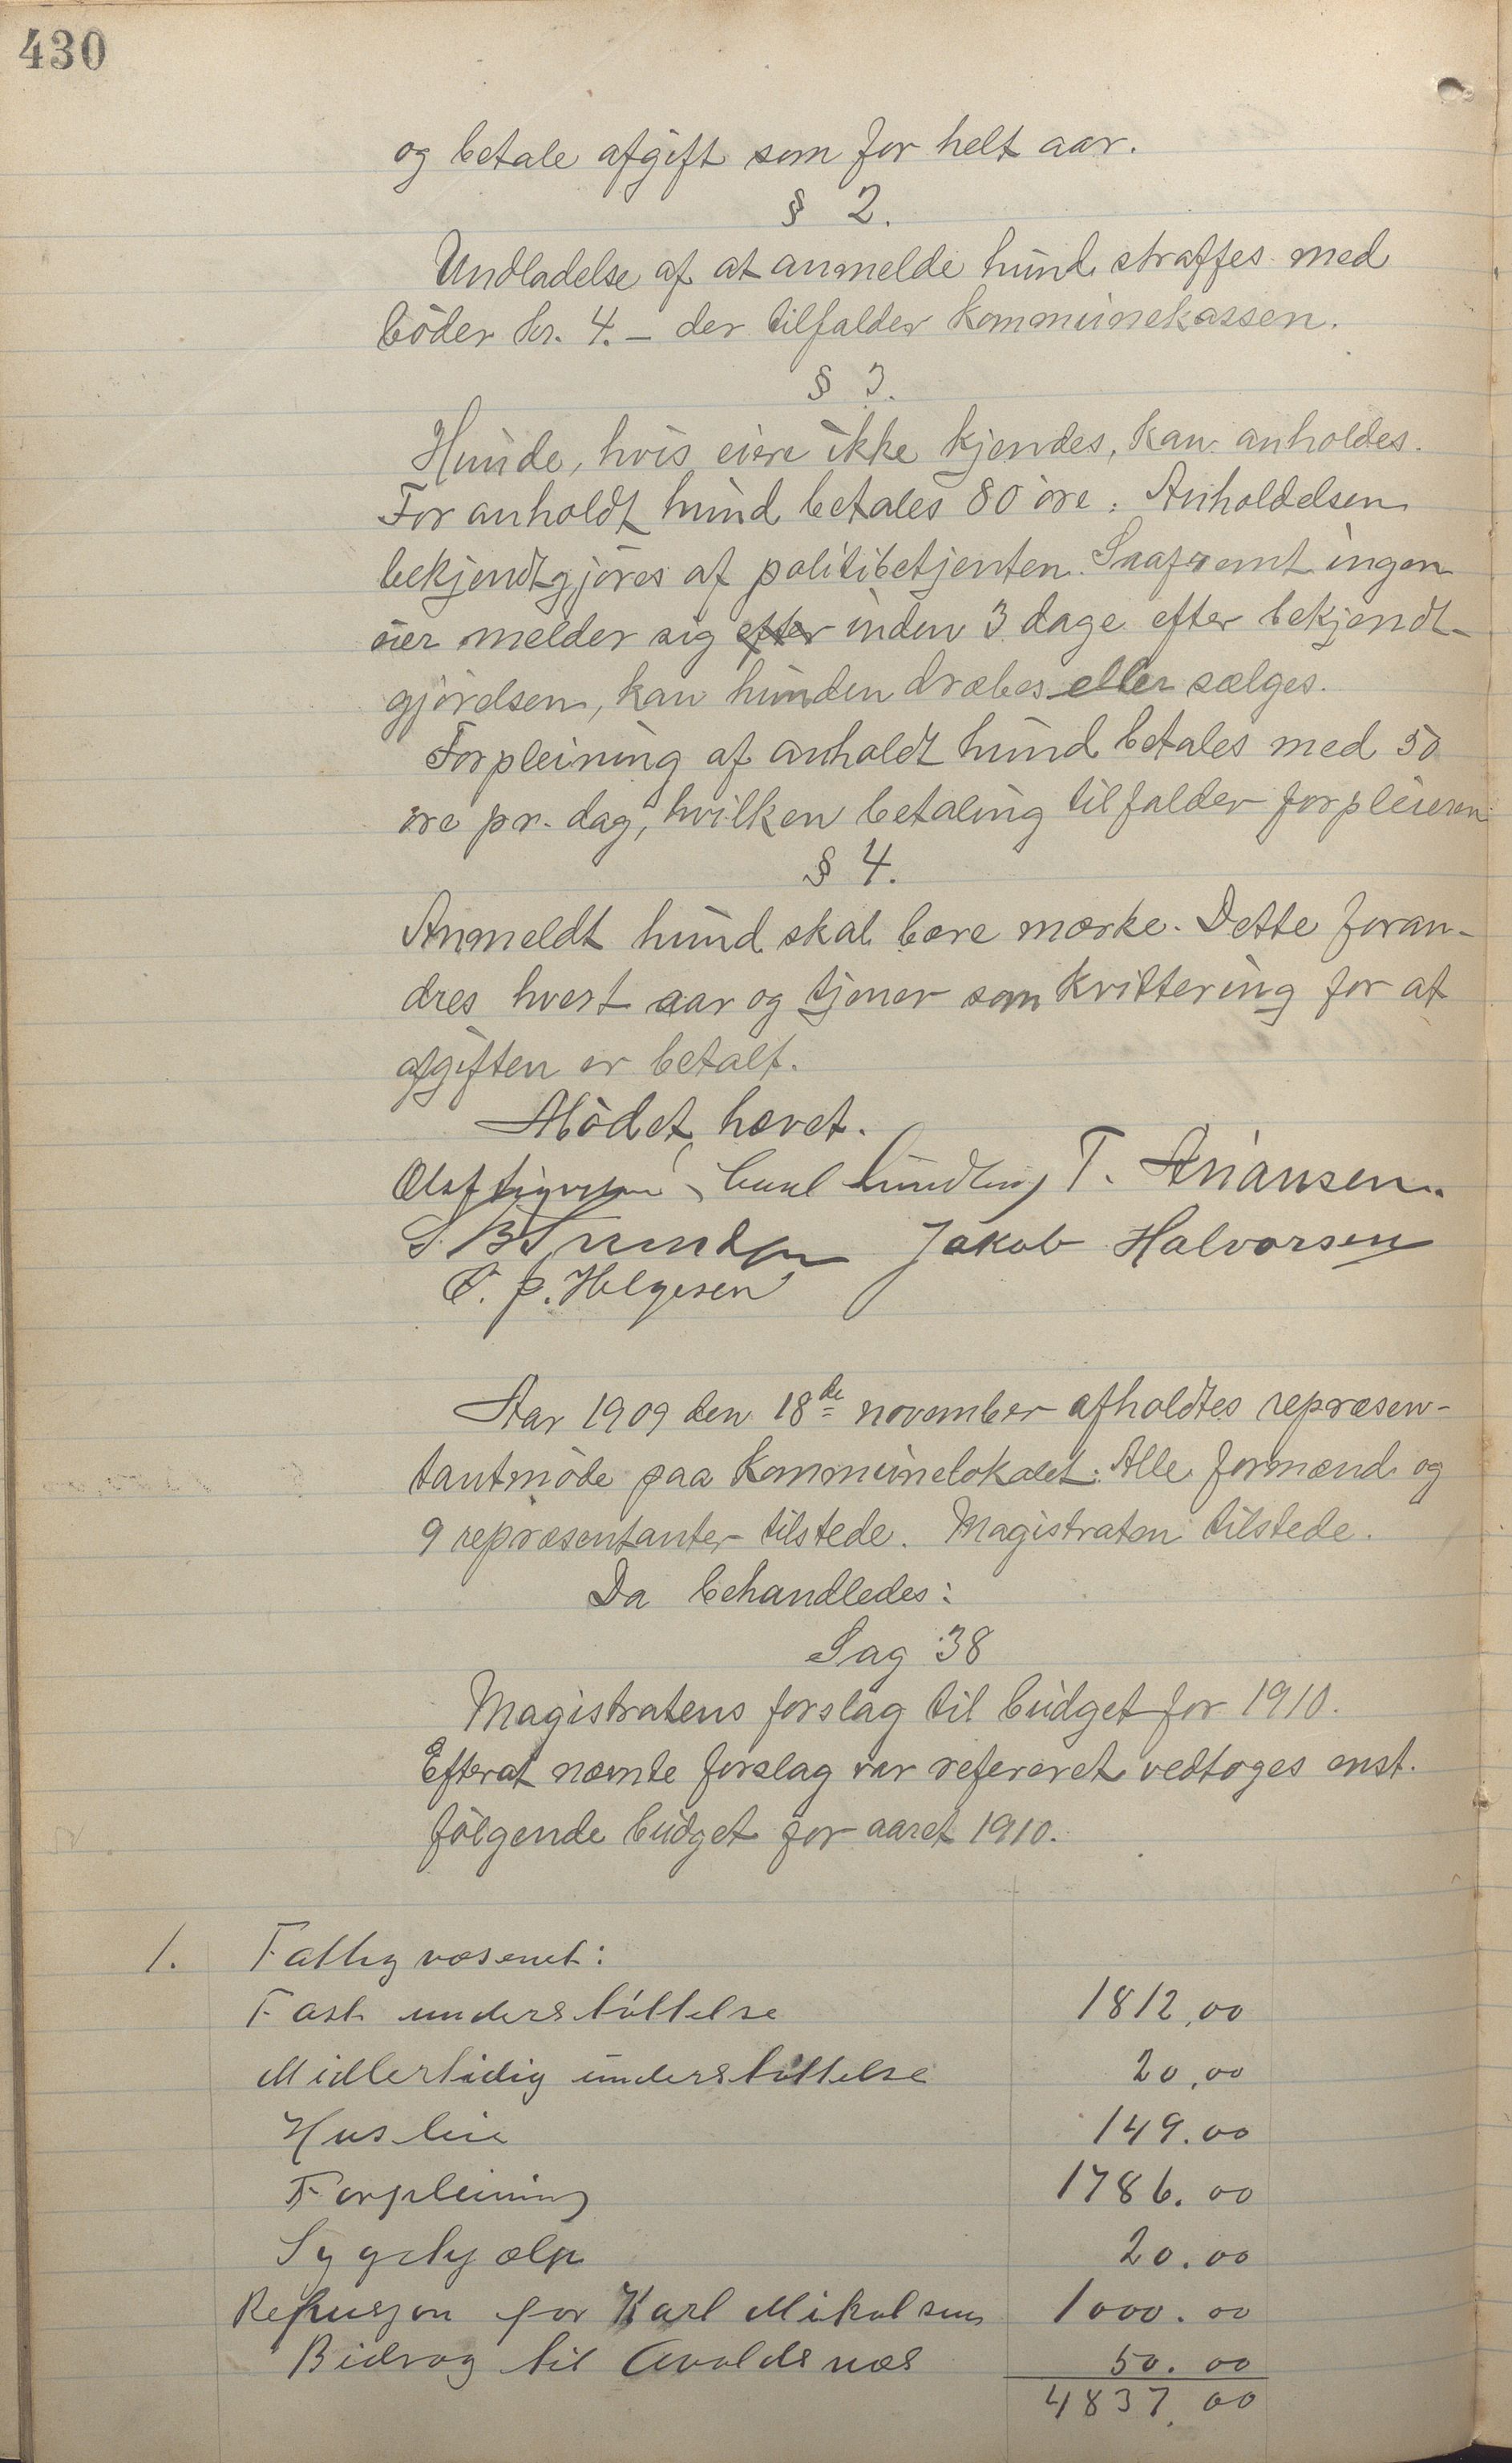 430
og betale afgift som for helt aar.
§ 2.
Undladelse af at anmelde hund straffes med
bøder kr. 4.– der tilfalder kommunekassen.
§ 3.
Hunde, hvis eiere ikke kjendes, kan anholdes.
For anholdt hund betales 80 øre. Anholdelsen
bekjendtgjøres af politibetjenten. Saafremt ingen
eier melder sig efter inden 3 dage efter bekjendt-
gjørelsen, kan hunden dræbes eller sælges.
Forpleining af anholdt hund betales med 50
øre pr. dag, hvilken betaling tilfalder forpleieren.
§ 4.
Anmeldt hund skal bære mærke. Dette foran-
dres hvert aar og tjener som kvittering for at
afgiften er betalt.
Mødet hævet.
Carl Lindberg T. Ariansen.
Jakob Halvorsen
O. P. Helgesen
Aar 1909 den 18de november afholdtes repræsen-
tantmøde paa kommunelokalet. Alle formænd og
9 repræsentanter tilstede. Magistraten tilstede.
Da behandledes:
Sag 38
Magistratens forslag til budget for 1910.
Efterat nævnte forslag var refereret vedtoges enst.
følgende budget for aaret 1910.
1. Fattigvæsenet:
Fast understøttelse 1812,00
Midlertidig understøttelse 20,00
Husleie 149.00
Forpleining 1786.00
Sygehjælp 20.00
Refusjon for Karl Mikalsens 1000.00
Bidrag til Avaldsnæs 50.00
4837,00